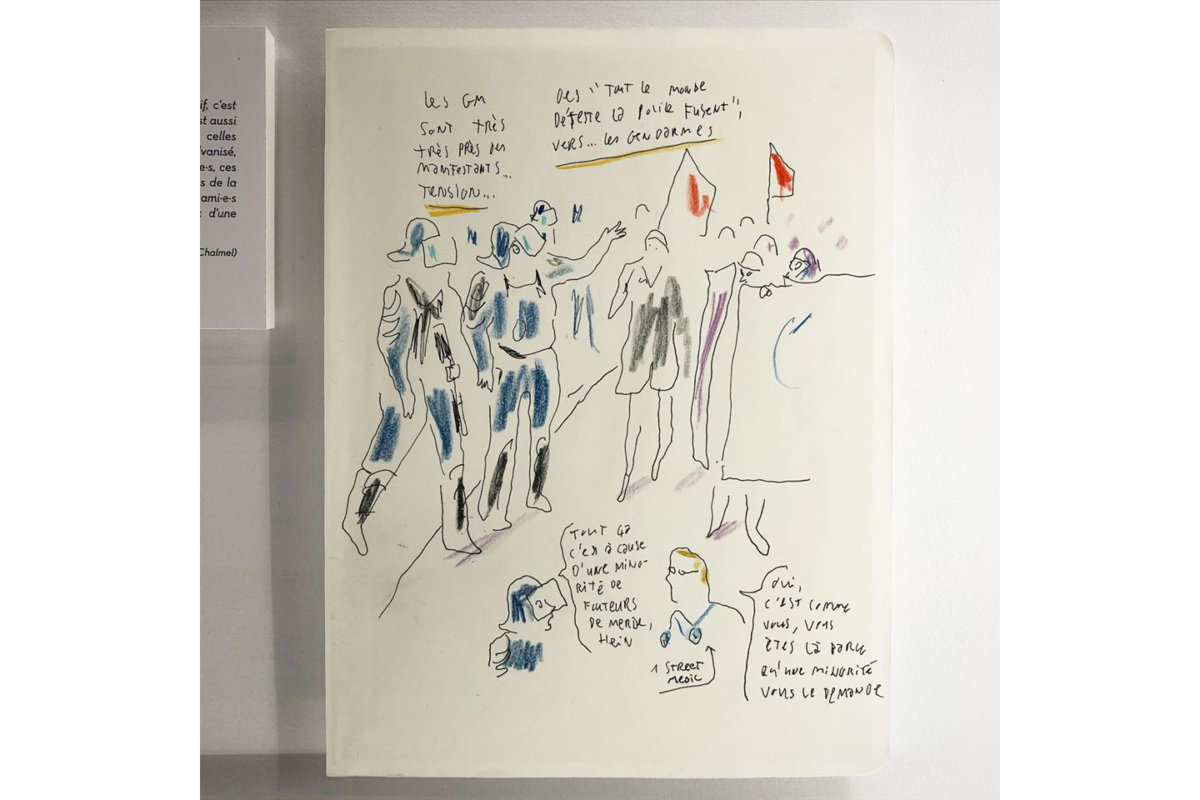 if, c'est
st aussi
celles
vanisé,
e·s, ces
s de la
ami·e·s
d'une
Chalmel)
les GM
SONT TRÈS
TRÈS PRÈS DES
MANIFESTANTS...
TENSION...
Des "TOUT le MONDE
DÉTESTE LA POLICE FUSENT",
VERS... les GENDARMES
TOUT ÇA
c'est à cause
D'UNE MINO-
RITÉ DE
FOUTEURS
DE MERDE,
Hein
1 STREET
MEDIC
Oui,
C'EST COMME
VOUS, VOUS
ÊTES LÀ PARCE
QU'UNE MINORITÉ
VOUS LE DEMANDE